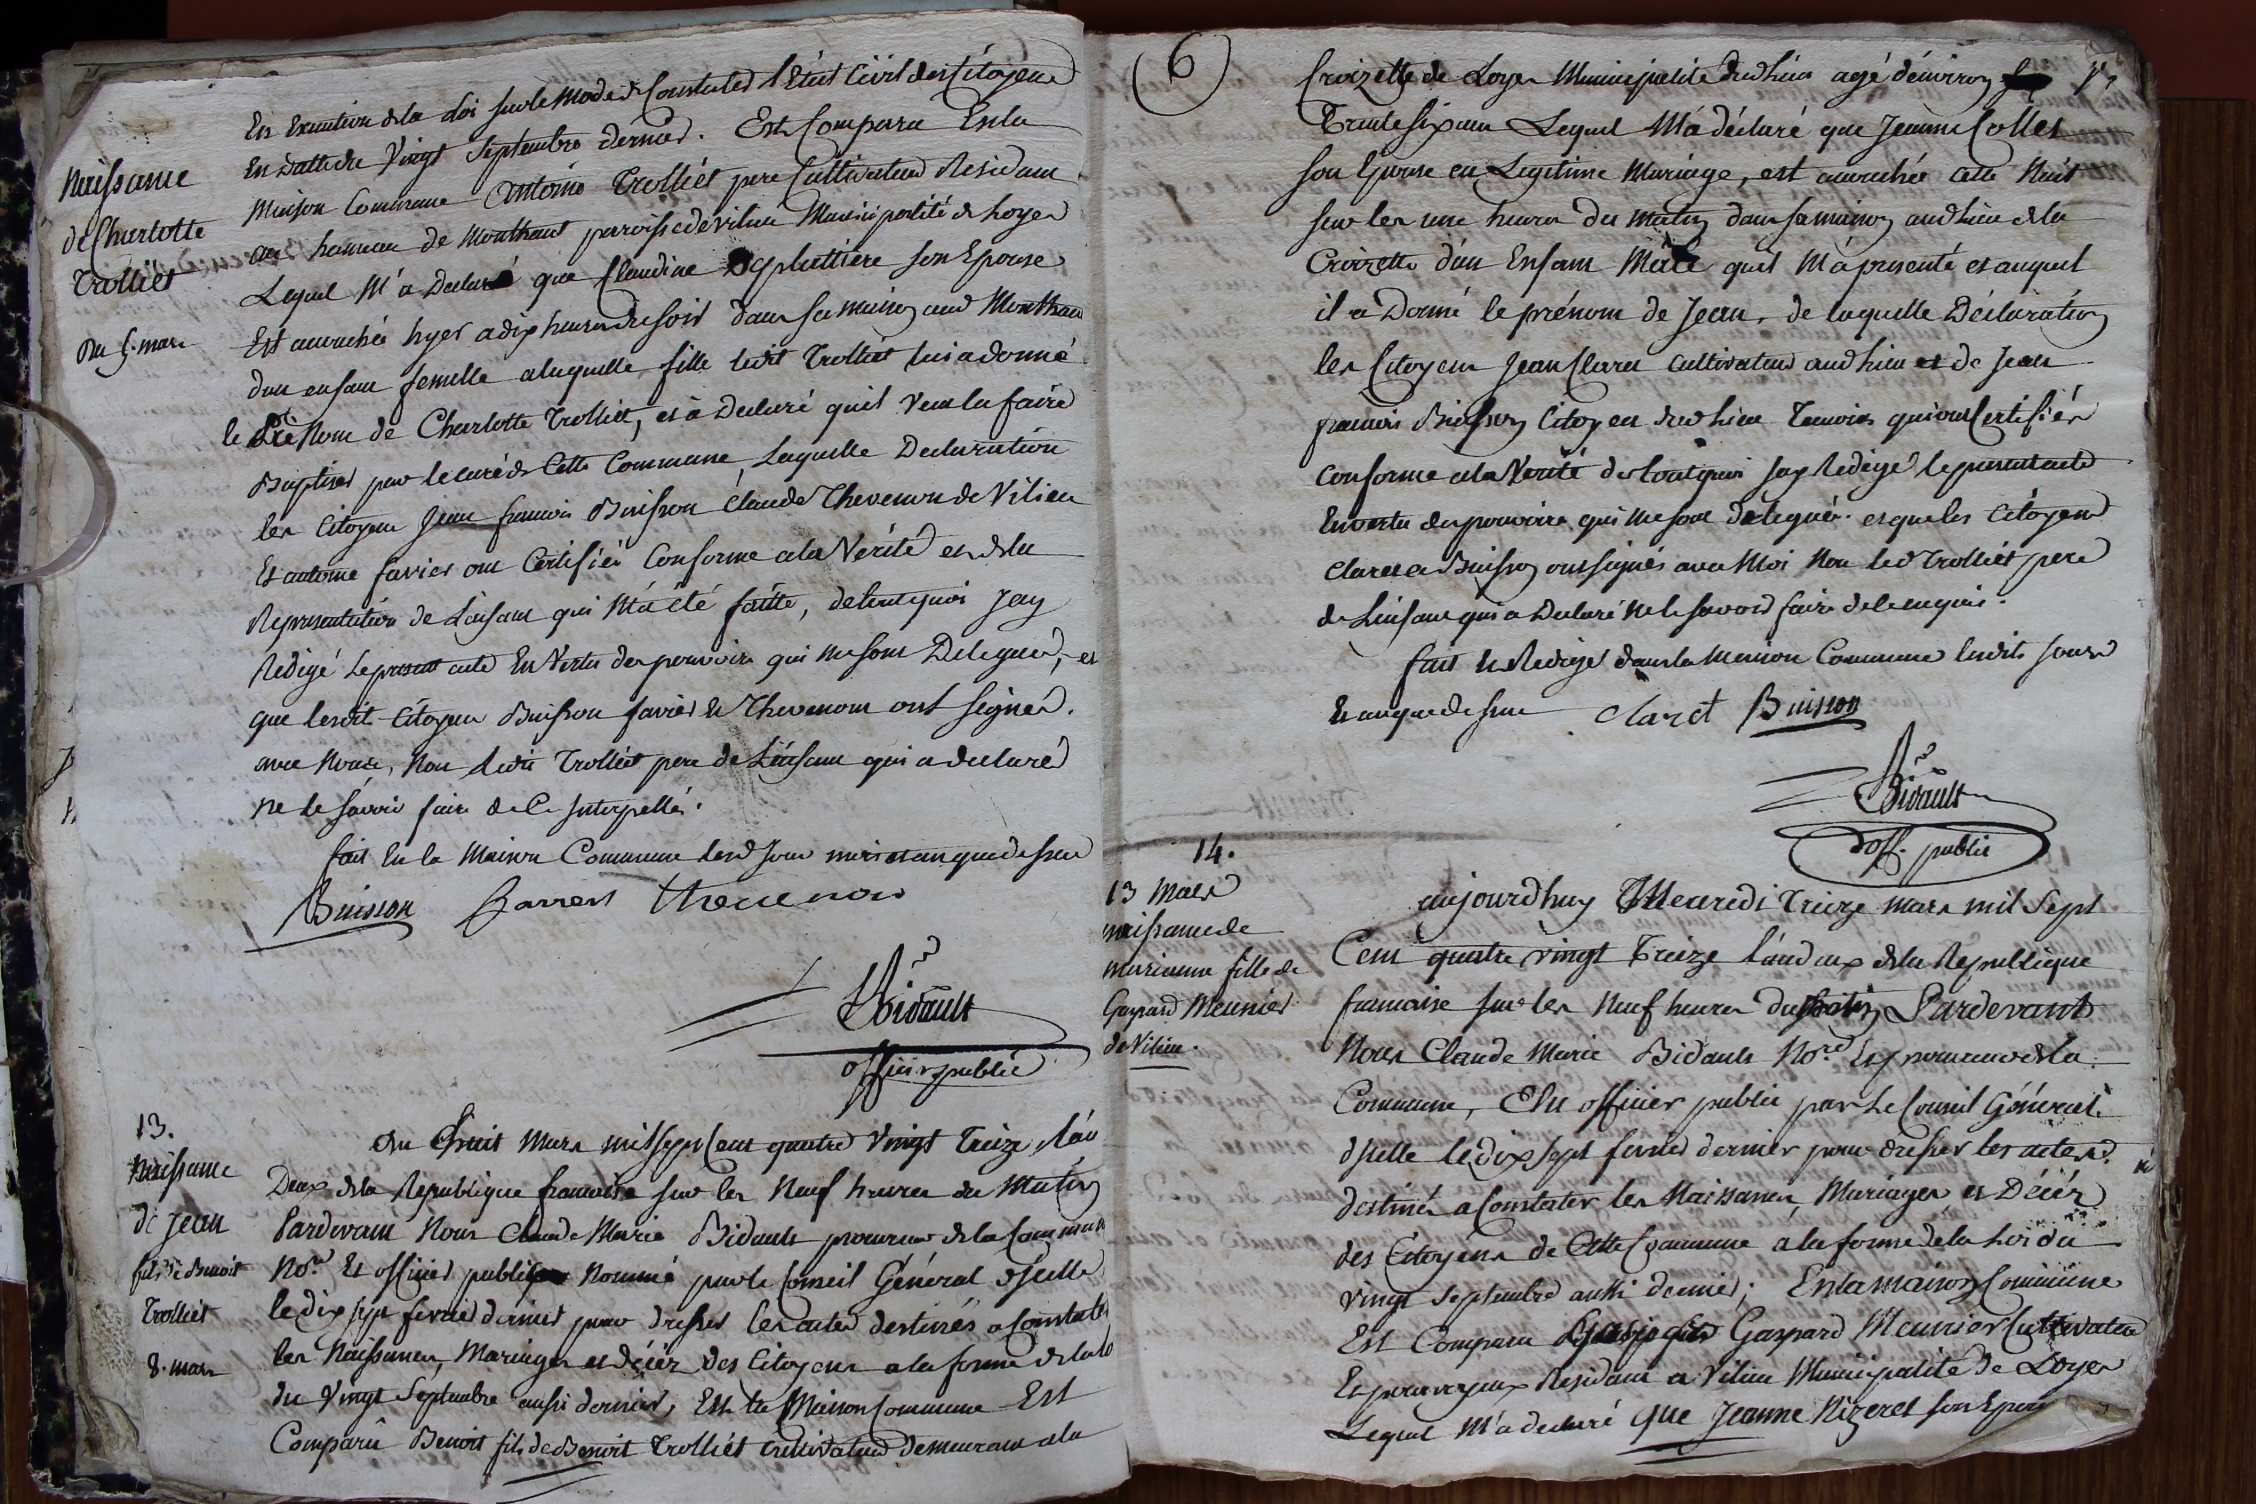 En Execution de la Loi sur le Mode de Constater l'Etat Civil des Citoyens
En Datte du Vingt Septembre dernier. Est Comparu En la
Maison Commune Antoine Trolliet pere Cultivateur Residant
au hameau de Monthaut parroisse de vilieu Municipalité de Loyes
Lequel M'a Declaré que Claudine Deplattiere son Epouse
Est accouchée hyer a dix heures du soir dans sa maison aud Monthau
d'un enfant femelle a laquelle fille ledit Trolliet lui a donné
le Pré Nom de Charlotte Trolliet, et à Declaré quil veut la faire
Baptiser par le curé de Cette Commune, Laquelle Declaration
les Citoyens Jean francois Buisson Claude Thevenon de Vilieu
Et antoine favier ont Certifiés Conforme a la Verité et de la
Representation de L'enfant qui M'a été faitte, de tout quoi Jay
Redigé Le present acte En Vertu des pouvoirs qui me sont Delegués, et
que lesdit Citoyens Buisson favier & Thevenon ont signés.
avec Nous, Non ledit Trolliet pere de L'enfant qui a declaré
ne le sçavoir faire de Ce Interpellé.
fait En la Maison Commune lesd Jour mois et an que dessus
Buisson thevenon
Bidault
officier public
Naissance
de Charlotte
Trolliet
Du 5. mars
13.
Naissance
de Jean
fils de Benoit
Trolliet
8. mars
Du huit Mars mil sept Cent quatre Vingt Treize, L'an
Deux de la Republique francoise sur les Neuf heures du Matin
Pardevant Nous Claude Marie Bidault procureur de la Commune
No.re Et officier public Nommé par le Conseil Général d'icelle
le dix sept fevrier dernier pour dresser les actes destinés a Constater
les Naissances, Mariages et décès des Citoyens a la forme de la loi
du Vingt Septembre aussi dernier, En la Maison Commune Est
Comparu Benoit fils de Benoit Trolliet cultivateur demeurant a la
6
Croizette de Loyes Municipalité dud lieu agé d'environ
Trente six ans Lequel M'a déclaré que Jeanne Collet
son Epouse en Legitime Mariage, est accouchée cette Nuit
sur les une heures du matin dans sa maison aud lieu de la
Croizette d'un Enfant Mâle quil M'a presenté et auquel
il a Donné le prénom de Jean, de laquelle Déclaration
les Citoyens Jean Claret cultivateur aud lieu et de Jean
francois Buisson Citoyen dud lieu Temoins qui ont Certifiés
Conforme a la Verité de tout quoi Jay Redigé le present acte
En vertu des pouvoirs qui me sont délegués. et que les Citoyens
Claret & Buisson ont signés avec Moi Non led Trolliet pere
de L'enfant qui a Declaré ne le savoir faire de ce enquis.
fait & Redigé dans la Maison Commune lesdits Jour
Et an que dessus Claret Buisson
Bidault
off. public
14.
13 Mars
naissance de
marianne fille de
Gaspard Meunier
de Vilieu.
aujourdhuy Mecredi Treize mars mil Sept
Cent quatre vingt Treize l'an deux de la Republique
francaise sur les Neuf heures du matin Pardevant
Nous Claude Marie Bidault No.re Et procureur de la
Commune, Elu officier public par Le Conseil Général
d'icelle le dix sept fevrier dernier pour dresser les actes
destinés a Constater les Naissances, Mariages et Décès
des Citoyens de Cette Commune a la forme de la Loi du
vingt Septembre aussi dernier; En la maison Commune
Est Comparu Gaspard Meunier Cultivateur
Residant a Vilieu Municipalité de Loyes
Lequel M'a declaré que Jeanne Nizeret son Epouse